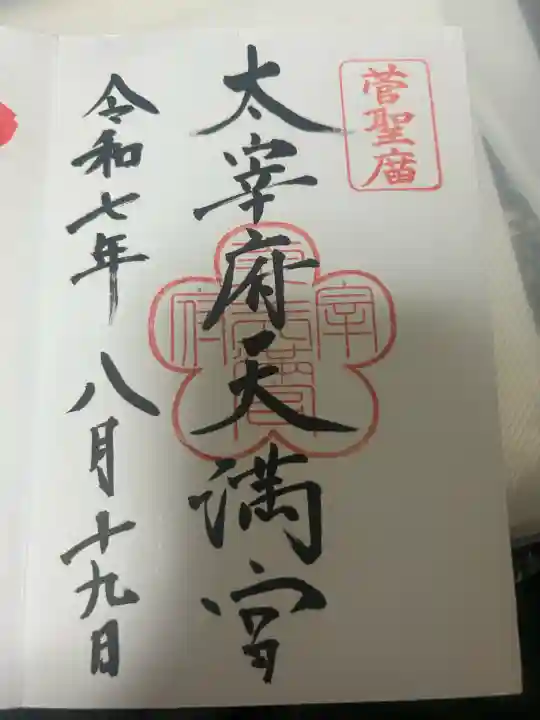 菅聖庿
太宰府天満宮
令和七年 八月十九日